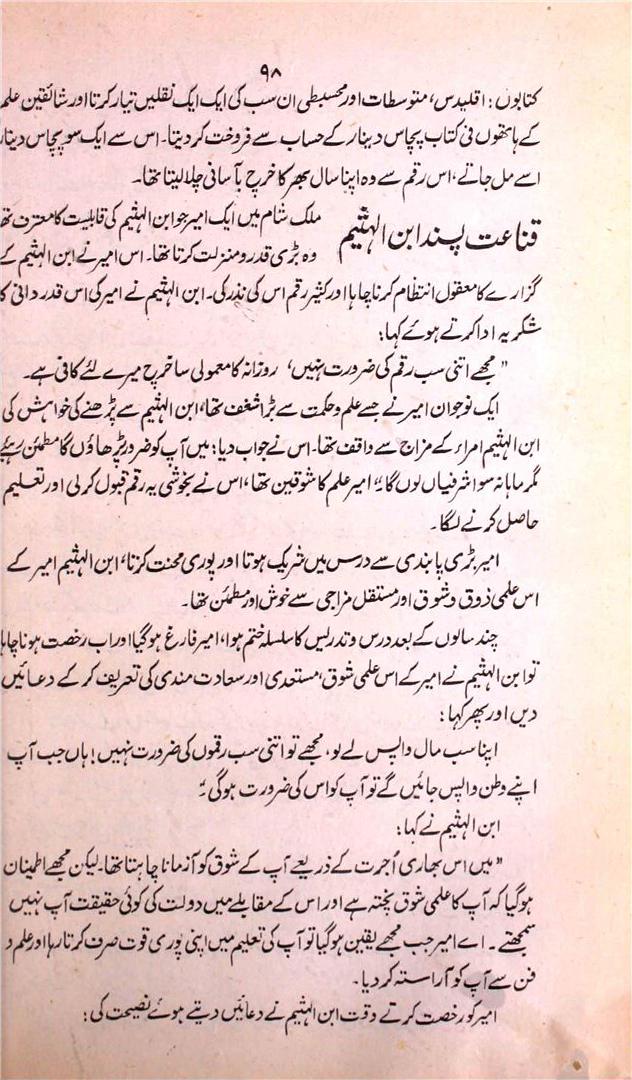 ۹۸
کتابوں: اقلیدس، متوسطات اور مجسطی ان سب کی ایک ایک نقلیں تیار کرتا اور شائقین علم
کے ہاتھوں فی کتاب پچاس دینار کے حساب سے فروخت کر دیتا۔ اس سے ایک سو پچاس دینار
اسے مل جاتے، اس رقم سے وہ اپنا سال بھر کا خرچ بآسانی چلا لیتا تھا۔
قناعت پسند ابن الہثیم
ملک شام میں ایک امیر جو ابن الہثیم کی قابلیت کا معترف تھا
وہ بڑی قدر و منزلت کرتا تھا۔ اس امیر نے ابن الہثیم کے
گزارے کا معقول انتظام کرنا چاہا اور کثیر رقم اس کی نذر کی۔ ابن الہثیم نے امیر کی اس قدر دانی کا
شکریہ ادا کرتے ہوئے کہا؛
"مجھے اتنی سب رقم کی ضرورت نہیں، روزانہ کا معمولی سا خرچ میرے لئے کافی ہے۔
ایک نوجوان امیر نے جسے علم و حکمت سے بڑا شغف تھا، ابن الہثیم سے پڑھنے کی خواہش کی
ابن الہثیم امراء کے مزاج سے واقف تھا۔ اس نے جواب دیا؛ میں آپ کو ضرور پڑھاؤں گا مطمئن رہیئے
مگر ماہانہ سو اشرفیاں لوں گا۔" امیر علم کا شوقین تھا، اس نے بخوشی یہ رقم قبول کر لی اور تعلیم
حاصل کرنے لگا۔
امیر بڑی پابندی سے درس میں شریک ہوتا اور پوری محنت کرتا، ابن الہثیم امیر کے
اس علمی ذوق و شوق اور مستقل مزاجی سے خوش اور مطمئن تھا۔
چند سالوں کے بعد درس و تدریس کا سلسلہ ختم ہوا، امیر فارغ ہو گیا اور اب رخصت ہونا چاہا
تو ابن الہثیم نے امیر کے اس علمی شوق، مستعدی اور سعادت مندی کی تعریف کر کے دعائیں
دیں اور پھر کہا؛
اپنا سب مال واپس لے لو، مجھے تو اتنی سب رقموں کی ضرورت نہیں! ہاں جب آپ
اپنے وطن واپس جائیں گے تو آپ کو اس کی ضرورت ہوگی۔"
ابن الہثیم نے کہا؛
"میں اس بھاری اُجرت کے ذریعے آپ کے شوق کو آزمانا چاہتا تھا۔ لیکن مجھے اطمینان
ہو گیا کہ آپ کا علمی شوق پختہ ہے اور اس کے مقابلے میں دولت کی کوئی حقیقت آپ نہیں
سمجھتے۔ اے امیر جب مجھے یقین ہو گیا تو آپ کی تعلیم میں اپنی پوری قوت صرف کرتا رہا اور علم و
فن سے آپ کو آراستہ کر دیا۔
امیر کو رخصت کرتے وقت ابن الہثیم نے دعائیں دیتے ہوئے نصیحت کی؛